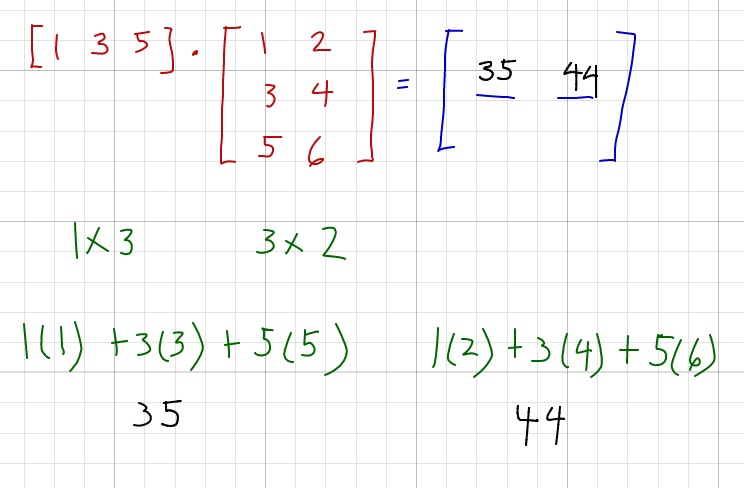 [1 3 5] · [1 2 = [35 44]
3 4
5 6]
1×3 3×2
1(1) +3(3) + 5(5) 1(2) + 3(4) + 5(6)
35 44